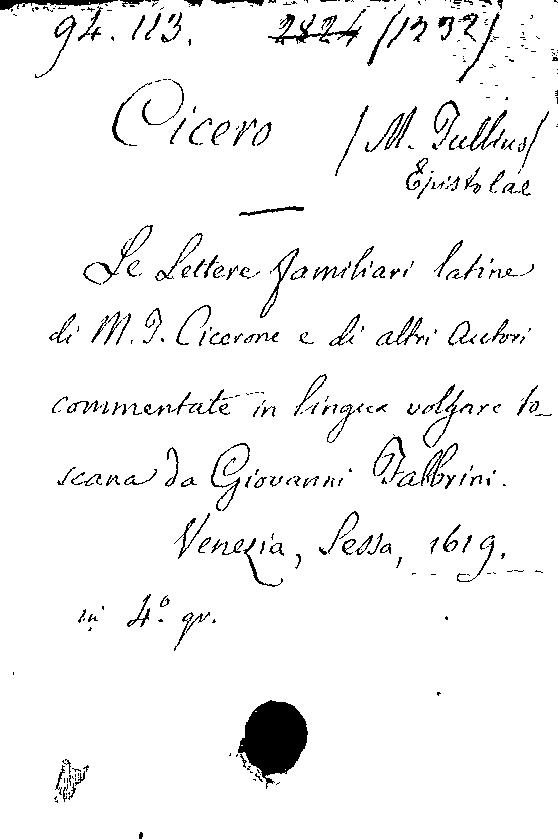 94. 113. 2824 (1232)
Cicero (M. Tullius)
Epistolae
Le Lettere familiari latine
di M. T. Cicerone e di altri Autori
commentate in lingua volgare to-
scana da Giovanni Fabbrini.
Venezia, Sessa, 1619.
in 4.º gr.